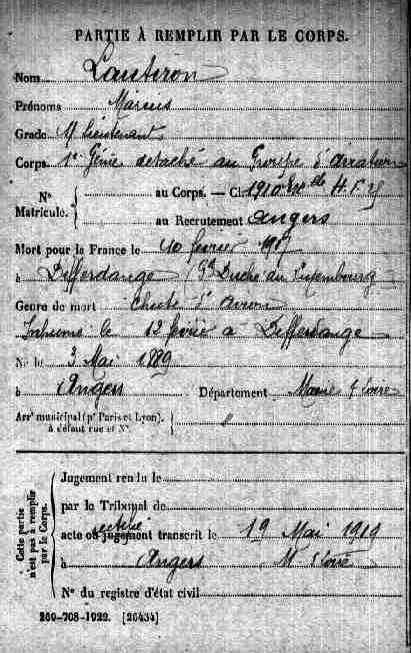 PARTIE À REMPLIR PAR LE CORPS.
Nom Lautiron
Prénoms Marius
Grade S/ lieutenant
Corps 1er Génie détaché au Groupe d'aviation
N° Matricule. { au Corps. — Cl. 1910 H. F
au Recrutement Angers
Mort pour la France le 10 février 1917
à Differdange (Gd Duché du Luxembourg
Genre de mort Chute d'avion
Inhumé le 12 février à Differdange
Né le 3 Mai 1889
à Angers Département Maine & Loire
Arrt municipal (pr Paris et Lyon),
à défaut rue et N°. } "
Cette partie
n'est pas à remplir
par le Corps.
Jugement rendu le
par le Tribunal de
rectifié
acte ou jugement transcrit le 19 Mai 1919
à Angers M. & Loire
N° du registre d'état civil
260-708-1922. [26434]